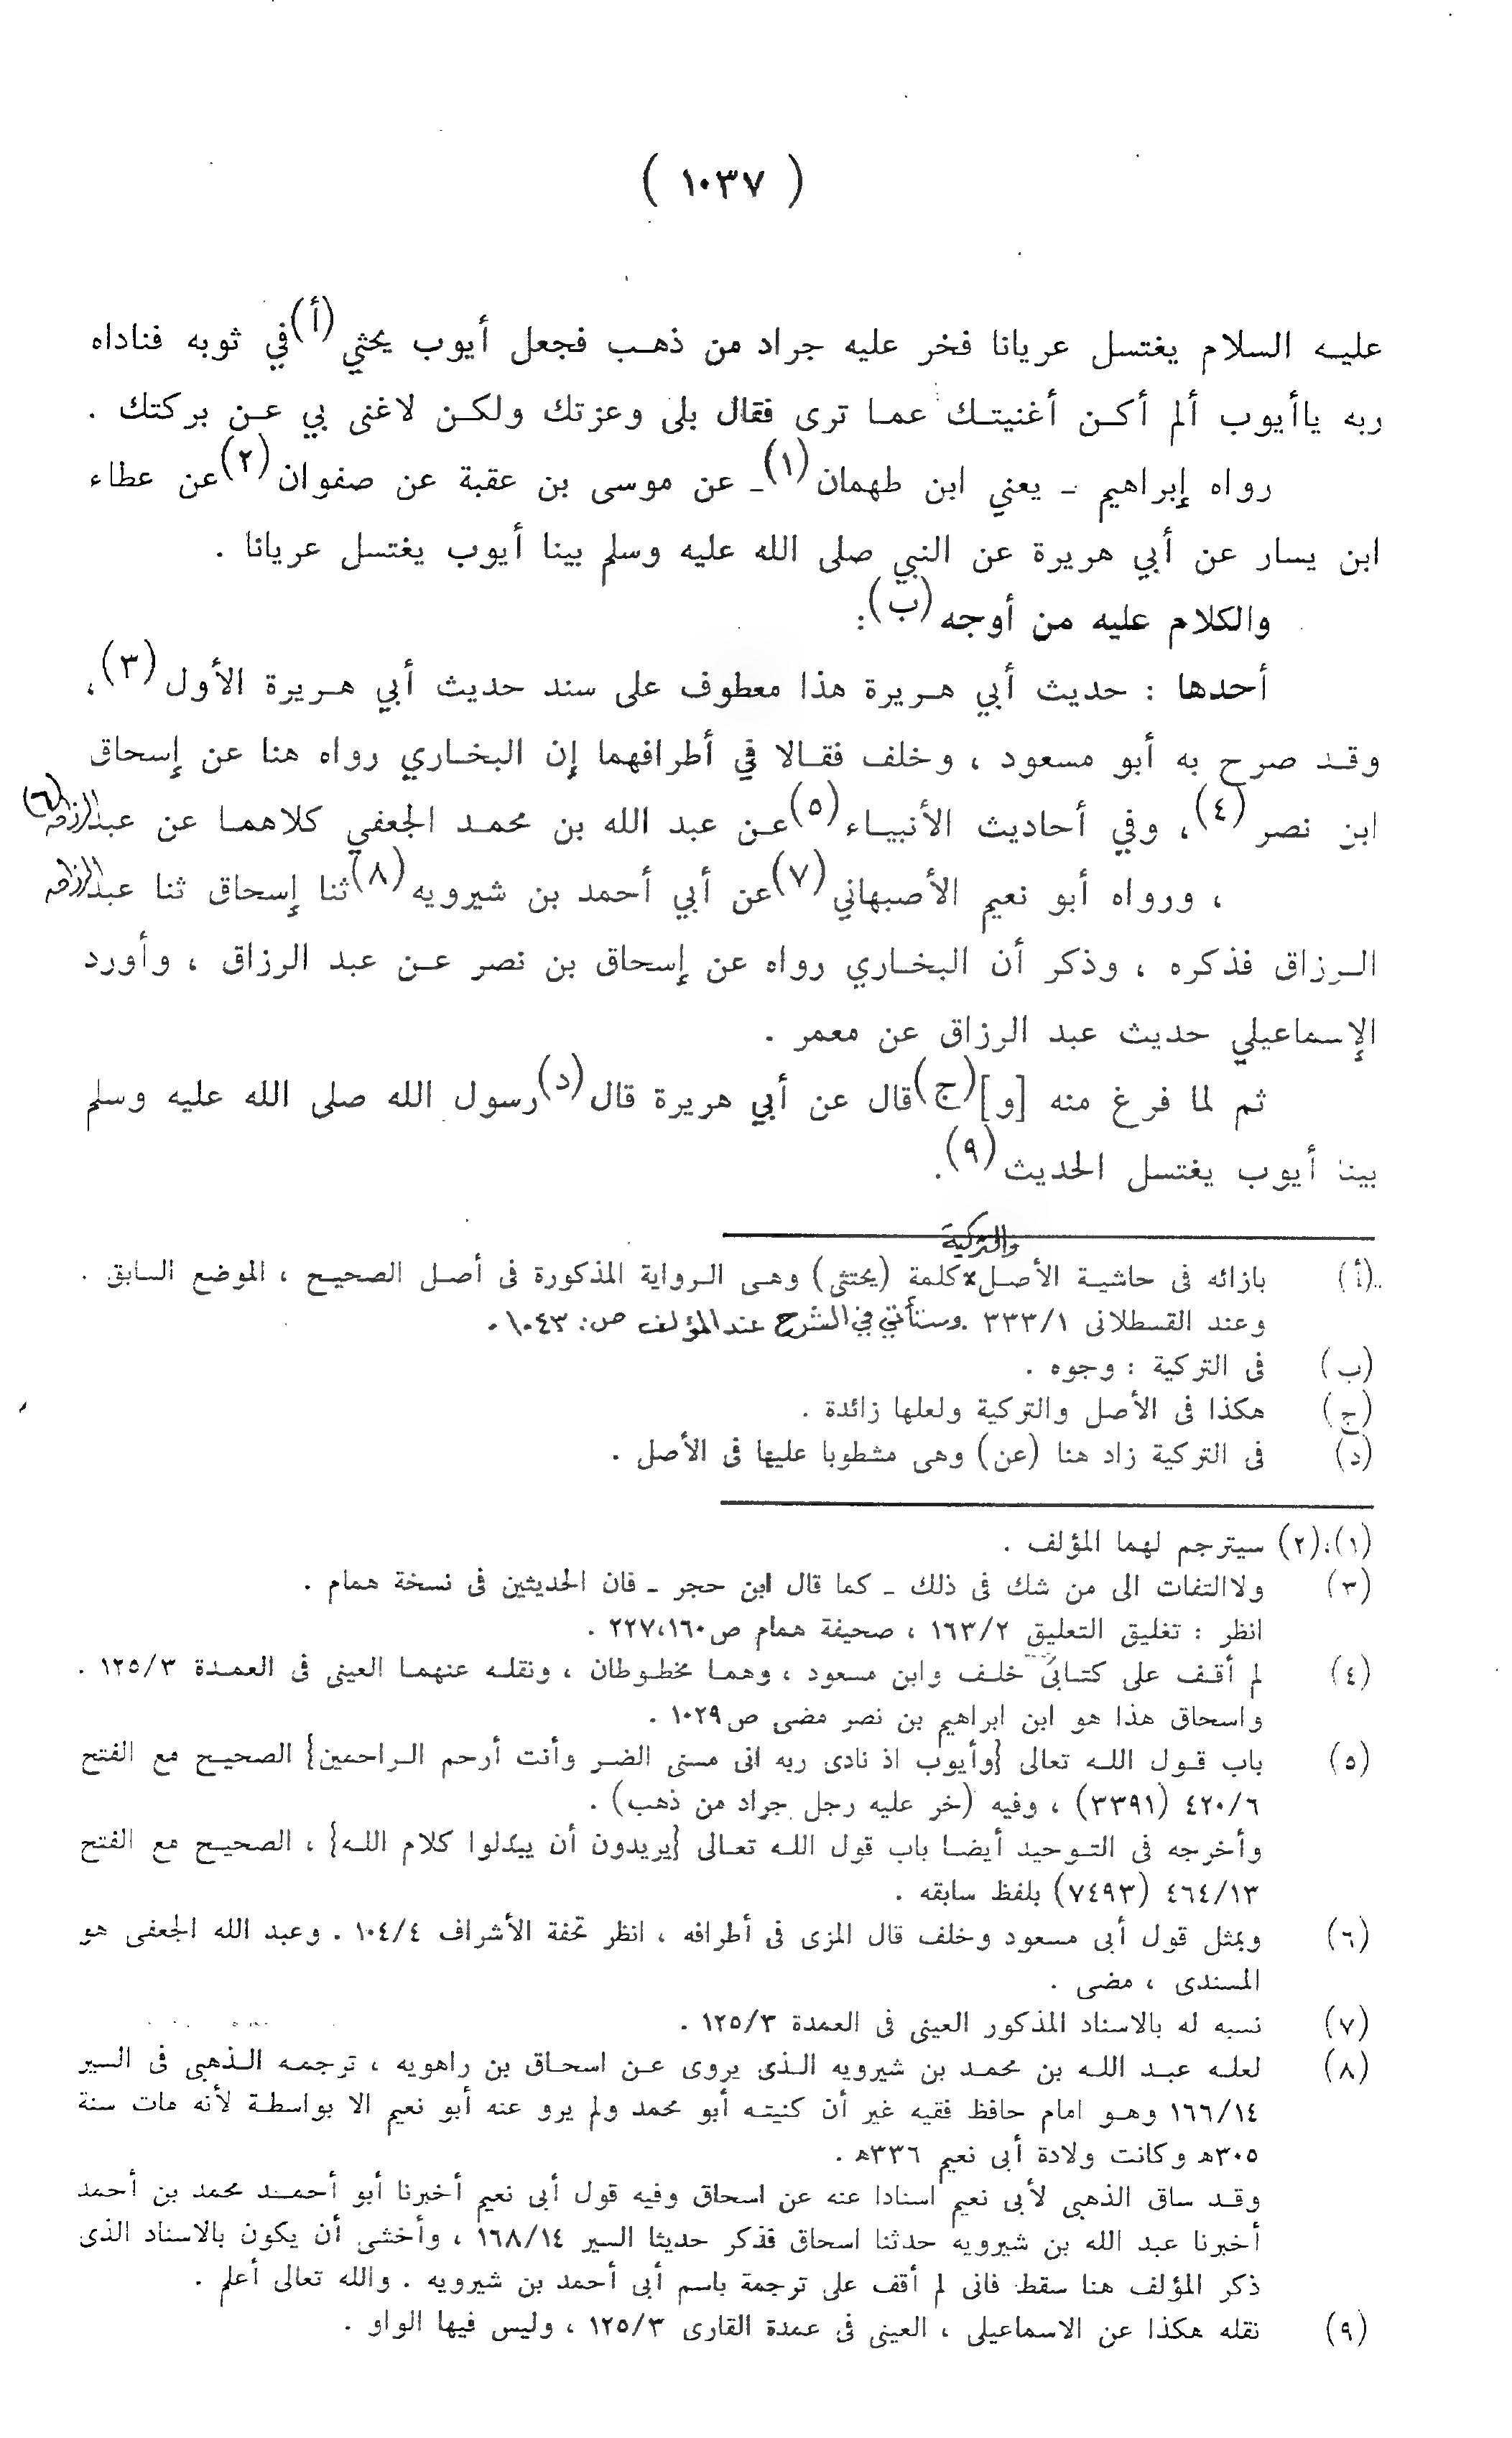 ( ١٠٣٧ )
عليه السلام يغتسل عريانا فخر عليه جراد من ذهب فجعل أيوب يحثي (أ) في ثوبه فناداه
ربه ياأيوب ألم أكن أغنيتك عما ترى فقال بلى وعزتك ولكن لاغنى بي عن بركتك .
رواه إبراهيم - يعني ابن طهمان (١) - عن موسى بن عقبة عن صفوان (٢) عن عطاء
ابن يسار عن أبي هريرة عن النبي صلى الله عليه وسلم بينا أيوب يغتسل عريانا .
والكلام عليه من أوجه (ب) :
أحدها : حديث أبي هريرة هذا معطوف على سند حديث أبي هريرة الأول (٣) ،
وقد صرح به أبو مسعود ، وخلف فقالا في أطرافهما إن البخاري رواه هنا عن إسحاق
ابن نصر (٤) ، وفي أحاديث الأنبياء (٥) عن عبد الله بن محمد الجعفي كلاهما عن عبد الرزاق (٦)
، ورواه أبو نعيم الأصبهاني (٧) عن أبي أحمد بن شيرويه (٨) ثنا إسحاق ثنا عبد الرزاق
الرزاق فذكره ، وذكر أن البخاري رواه عن إسحاق بن نصر عن عبد الرزاق ، وأورد
الإسماعيلي حديث عبد الرزاق عن معمر .
ثم لما فرغ منه [و] (ج) قال عن أبي هريرة قال (د) رسول الله صلى الله عليه وسلم
بينا أيوب يغتسل الحديث (٩) .
والتركية
(أ) بازائه فى حاشية الأصل × كلمة (يحتثى) وهى الرواية المذكورة فى أصل الصحيح ، الموضع السابق .
وعند القسطلانى ٣٣٣/١ . وستأتي في الشرح عند المؤلف ص: ١٠٤٣ .
(ب) فى التركية : وجوه .
(ج) هكذا فى الأصل والتركية ولعلها زائدة .
(د) فى التركية زاد هنا (عن) وهى مشطوبا عليها فى الأصل .
(١)،(٢) سيترجم لهما المؤلف .
(٣) ولاالتفات الى من شك فى ذلك - كما قال ابن حجر - فان الحديثين فى نسخة همام .
انظر : تغليق التعليق ١٦٣/٢ ، صحيفة همام ص١٦٠،٢٢٧ .
(٤) لم أقف على كتابى خلف وابن مسعود ، وهما مخطوطان ، ونقله عنهما العينى فى العمدة ١٢٥/٣ .
واسحاق هذا هو ابن ابراهيم بن نصر مضى ص١٠٢٩ .
(٥) باب قول الله تعالى {وأيوب اذ نادى ربه انى مسنى الضر وأنت أرحم الراحمين} الصحيح مع الفتح
٤٢٠/٦ (٣٣٩١) ، وفيه (خر عليه رجل جراد من ذهب) .
وأخرجه فى التوحيد أيضا باب قول الله تعالى {يريدون أن يبدلوا كلام الله} ، الصحيح مع الفتح
٤٦٤/١٣ (٧٤٩٣) بلفظ سابقه .
(٦) وبمثل قول أبى مسعود وخلف قال المزى فى أطرافه ، انظر تحفة الأشراف ١٠٤/٤ . وعبد الله الجعفى هو
المسندى ، مضى .
(٧) نسبه له بالاسناد المذكور العينى فى العمدة ١٢٥/٣ .
(٨) لعله عبد الله بن محمد بن شيرويه الذى يروى عن اسحاق بن راهويه ، ترجمه الذهبى فى السير
١٦٦/١٤ وهو امام حافظ فقيه غير أن كنيته أبو محمد ولم يرو عنه أبو نعيم الا بواسطة لأنه مات سنة
٣٠٥ه وكانت ولادة أبى نعيم ٣٣٦ه .
وقد ساق الذهبى لأبى نعيم اسنادا عنه عن اسحاق وفيه قول أبى نعيم أخبرنا أبو أحمد محمد بن أحمد
أخبرنا عبد الله بن شيرويه حدثنا اسحاق فذكر حديثا السير ١٦٨/١٤ ، وأخشى أن يكون بالاسناد الذى
ذكر المؤلف هنا سقط فانى لم أقف على ترجمة باسم أبى أحمد بن شيرويه . والله تعالى أعلم .
(٩) نقله هكذا عن الاسماعيلى ، العينى فى عمدة القارى ١٢٥/٣ ، وليس فيها الواو .